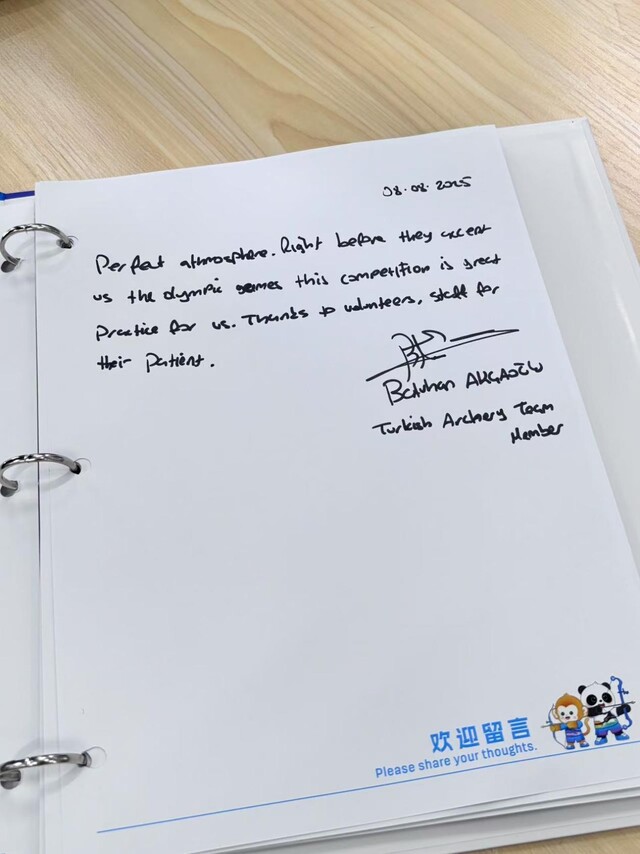 08.08.2025
Perfect athmosphere. Right before they accept
us the olympic games this competition is great
practice for us. Thanks to volunteers, staff for
their patient.
Batuhan AKÇAOĞLU
Turkish Archery Team
Member
欢迎留言
Please share your thoughts.